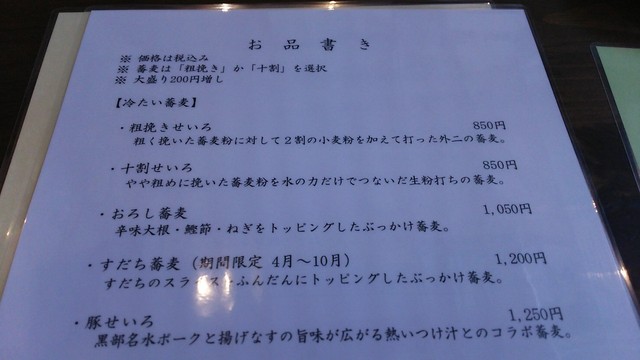 お品書き
※ 価格は税込み
※ 蕎麦は「粗挽き」か「十割」を選択
※ 大盛り200円増し
【冷たい蕎麦】
・粗挽きせいろ 850円
粗く挽いた蕎麦粉に対して２割の小麦粉を加えて打った外二の蕎麦。
・十割せいろ 850円
やや粗めに挽いた蕎麦粉を水の力だけでつないだ生粉打ちの蕎麦。
・おろし蕎麦 1,050円
辛味大根・鰹節・ねぎをトッピングしたぶっかけ蕎麦。
・すだち蕎麦（期間限定 4月～10月） 1,200円
すだちのスライスをふんだんにトッピングしたぶっかけ蕎麦。
・豚せいろ 1,250円
黒部名水ポークと揚げなすの旨味が広がる熱いつけ汁とのコラボ蕎麦。